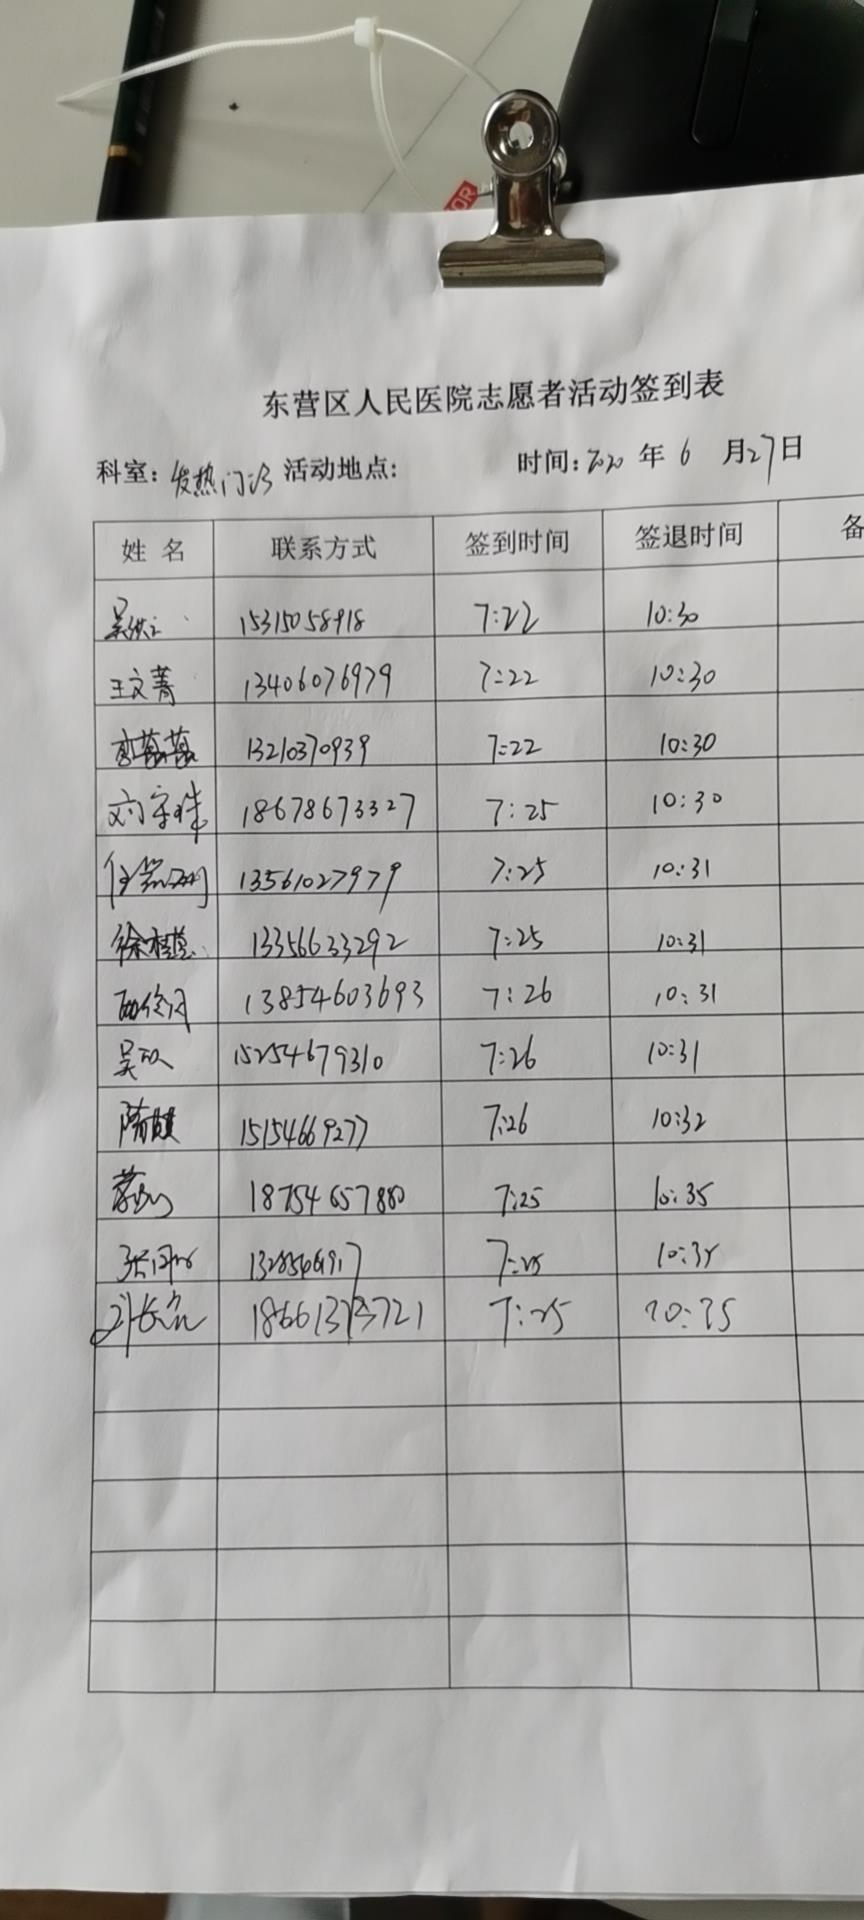 OR
东营区人民医院志愿者活动签到表
科室: 发热门诊 活动地点: 时间: 2020 年 6 月 27 日
姓 名 联系方式 签到时间 签退时间 备
吴 15315058918 7:22 10:30
王文菁 13406076979 7:22 10:30
13210370939 7:22 10:30
刘 18678673327 7:25 10:30
任 13561027979 7:25 10:31
徐 13356633292 7:25 10:31
13854603693 7:26 10:31
吴 15254679310 7:26 10:31
隋 15154669277 7:26 10:32
18754657880 7:25 10:35
张 7:25 10:35
刘长 7:25 10:35